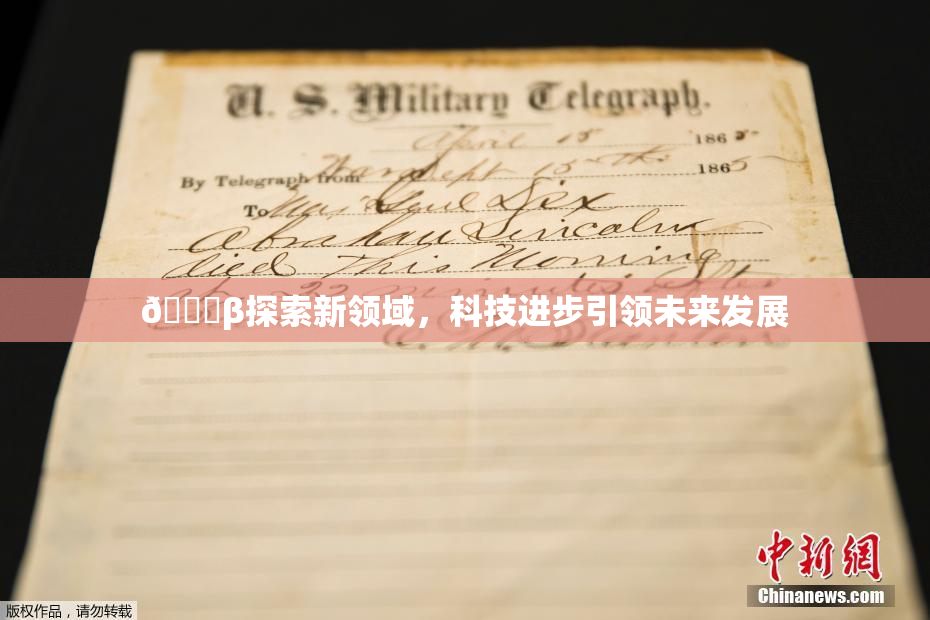 U. S. Military Telegraph.
April 15 1865
By Telegraph from War Dept 15th 1865
To Maj Genl Dix
Abraham Lincoln
died This Morning
at 22 minutes after
ð β探索新领域，科技进步引领未来发展
E. M. Stanton
中新网
Chinanews.com
版权作品，请勿转载